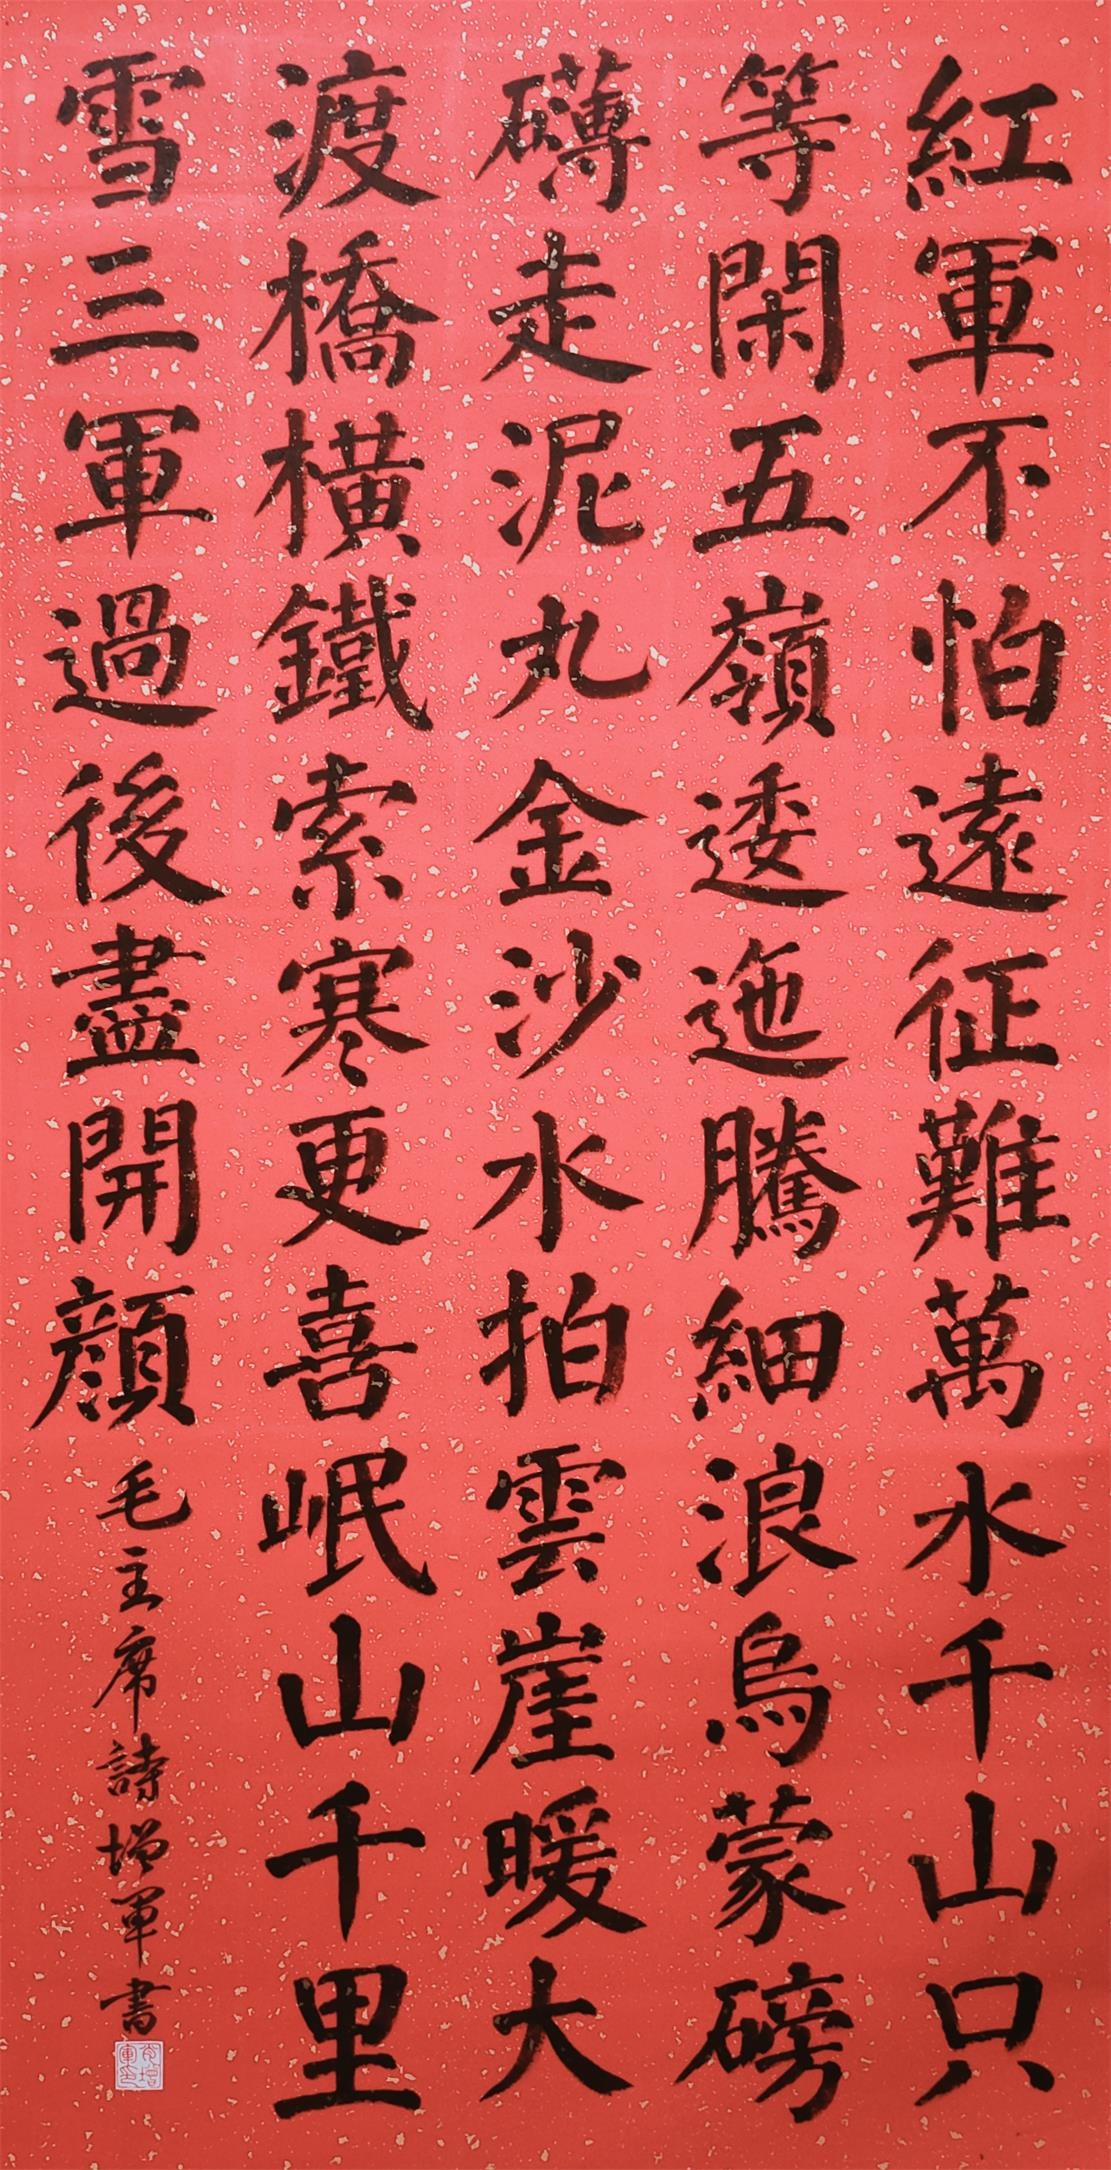 紅軍不怕遠征難萬水千山只
等閑五嶺逶迤騰細浪烏蒙磅
礴走泥丸金沙水拍雲崖暖大
渡橋橫鐵索寒更喜岷山千里
雪三軍過後盡開顏
毛主席詩增軍書